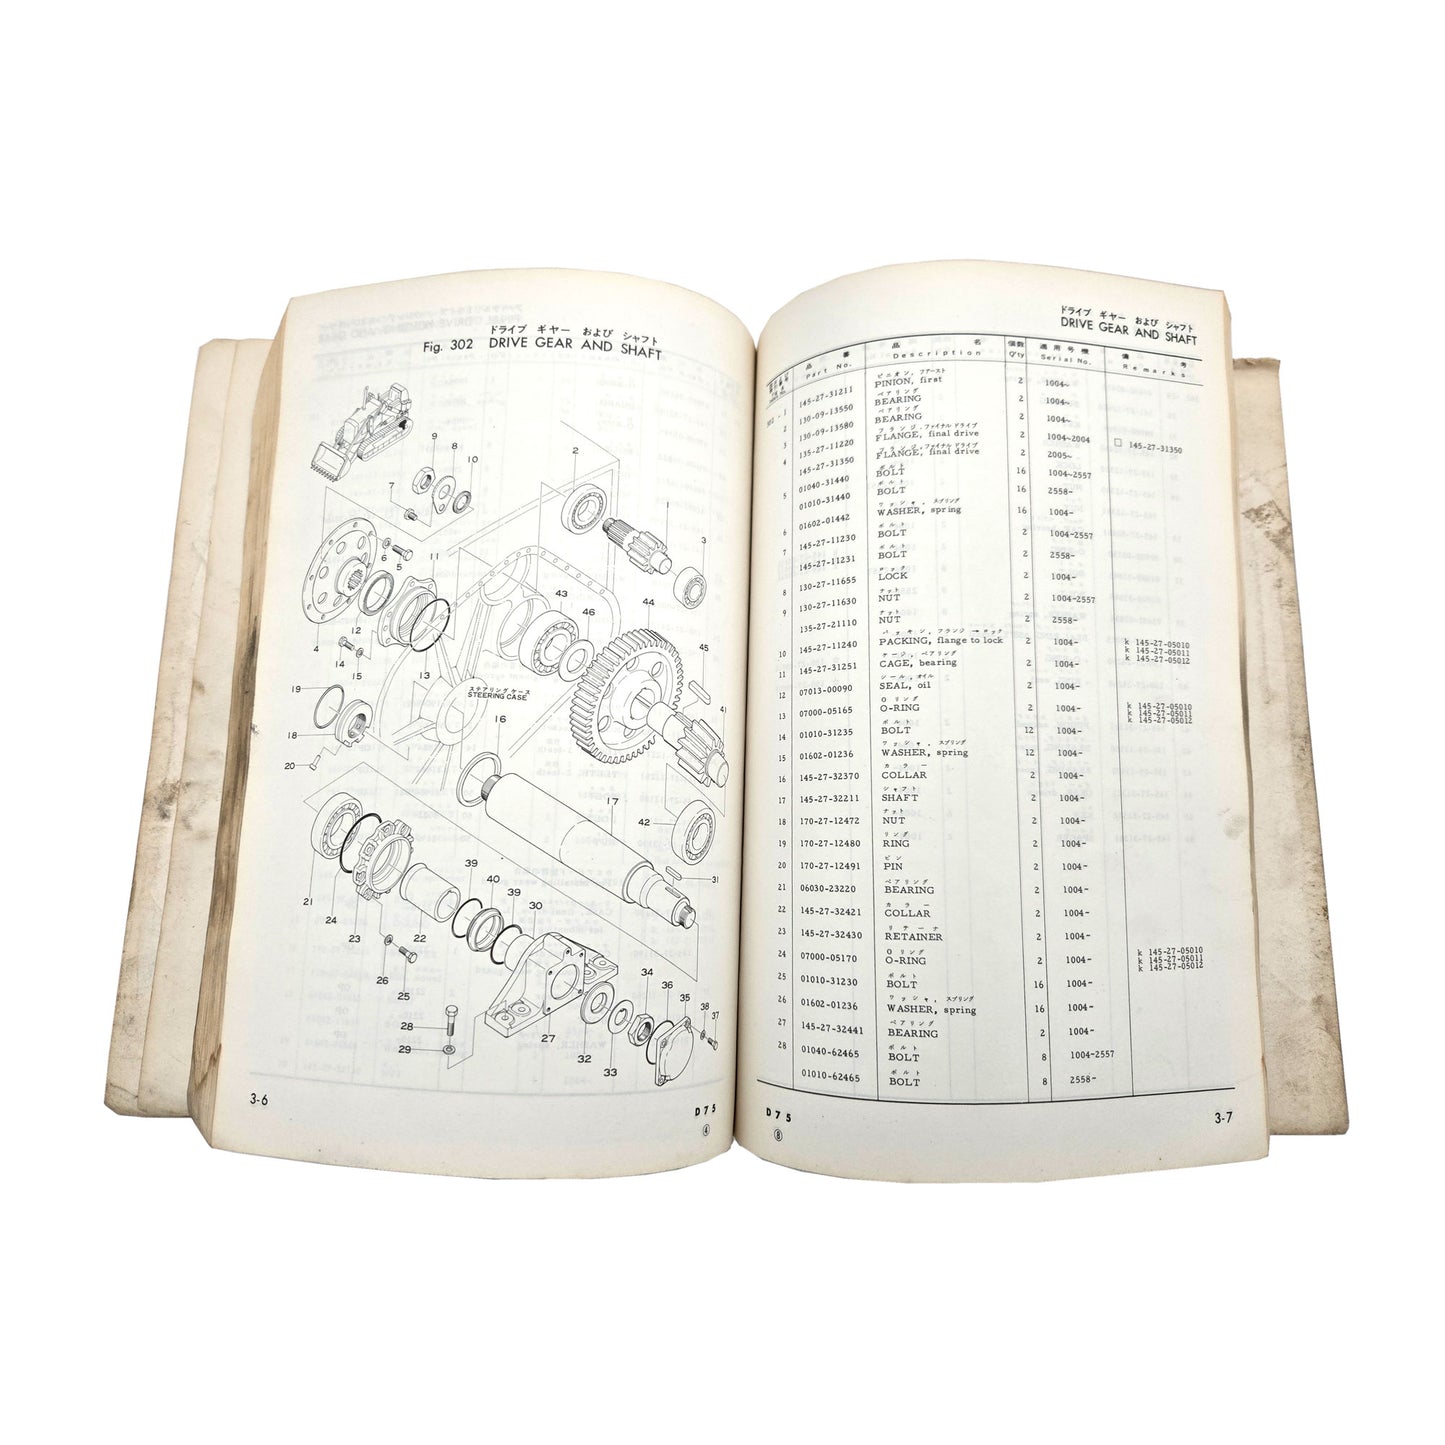 ドライブ ギヤー および シャフト
Fig. 302 DRIVE GEAR AND SHAFT
9
8
10
7
2
1
3
6
5
11
4
12
14
15
13
43
46
44
45
41
19
18
20
ステアリングケース
STEERING CASE
16
17
42
31
21
24
23
22
26
25
39
40
39
30
28
29
27
32
33
34
36
35
38
37
3-6
D75
④
ドライブ ギヤー および シャフト
DRIVE GEAR AND SHAFT
品 番 品 名 個数 適用号機 備 考
Part No. Description Q'ty Serial No. Remarks
ピニオン, ファースト
302 - 1 145-27-31211 PINION, first 2 1004~
ベアリング
2 130-09-13550 BEARING 2 1004~
ベアリング
3 130-09-13580 BEARING 2 1004~
フランジ, ファイナルドライブ
4 135-27-11220 FLANGE, final drive 2 1004~2004 □ 145-27-31350
フランジ, ファイナルドライブ
145-27-31350 FLANGE, final drive 2 2005~
ボルト
5 01040-31440 BOLT 16 1004~2557
ボルト
01010-31440 BOLT 16 2558-
ワッシャ, スプリング
6 01602-01442 WASHER, spring 16 1004-
ボルト
7 145-27-11230 BOLT 2 1004-2557
ボルト
145-27-11231 BOLT 2 2558-
ロック
8 130-27-11655 LOCK 2 1004-
ナット
9 130-27-11630 NUT 2 1004-2557
ナット
135-27-21110 NUT 2 2558-
パッキン, フランジ → ロック
10 145-27-11240 PACKING, flange to lock 2 1004- k 145-27-05010
k 145-27-05011
k 145-27-05012
ケージ, ベアリング
11 145-27-31251 CAGE, bearing 2 1004-
シール, オイル
12 07013-00090 SEAL, oil 2 1004-
O リング
13 07000-05165 O-RING 2 1004- k 145-27-05010
k 145-27-05011
k 145-27-05012
ボルト
14 01010-31235 BOLT 12 1004-
ワッシャ, スプリング
15 01602-01236 WASHER, spring 12 1004-
カラー
16 145-27-32370 COLLAR 2 1004-
シャフト
17 145-27-32211 SHAFT 2 1004-
ナット
18 170-27-12472 NUT 2 1004-
リング
19 170-27-12480 RING 2 1004-
ピン
20 170-27-12491 PIN 2 1004-
ベアリング
21 06030-23220 BEARING 2 1004-
カラー
22 145-27-32421 COLLAR 2 1004-
リテーナ
23 145-27-32430 RETAINER 2 1004-
O リング
24 07000-05170 O-RING 2 1004- k 145-27-05010
k 145-27-05011
k 145-27-05012
ボルト
25 01010-31230 BOLT 16 1004-
ワッシャ, スプリング
26 01602-01236 WASHER, spring 16 1004-
ベアリング
27 145-27-32441 BEARING 2 1004-
ボルト
28 01040-62465 BOLT 8 1004-2557
ボルト
01010-62465 BOLT 8 2558-
D75
⑧
3-7